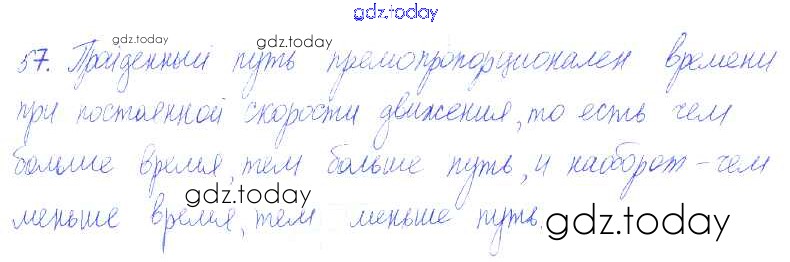 gdz.today
57. Пройденный путь премопропорционален времени
gdz.today
при постоянной скорости движения, то есть чем
больше время, тем больше путь, и наоборот - чем
gdz.today
меньше время, тем меньше путь.
gdz.today